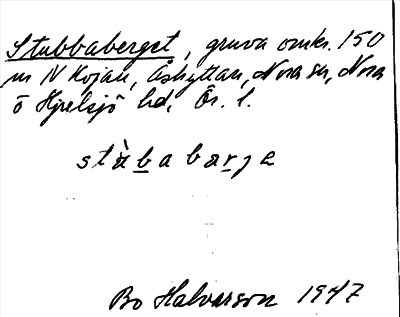 Stubbaberget, gruva omkr. 150
m N Kojan, Åshyttan, Nora sn, Nora
o Hjulsjö hd, Ör. l.
stàbabarge
Bo Halvarson 1947